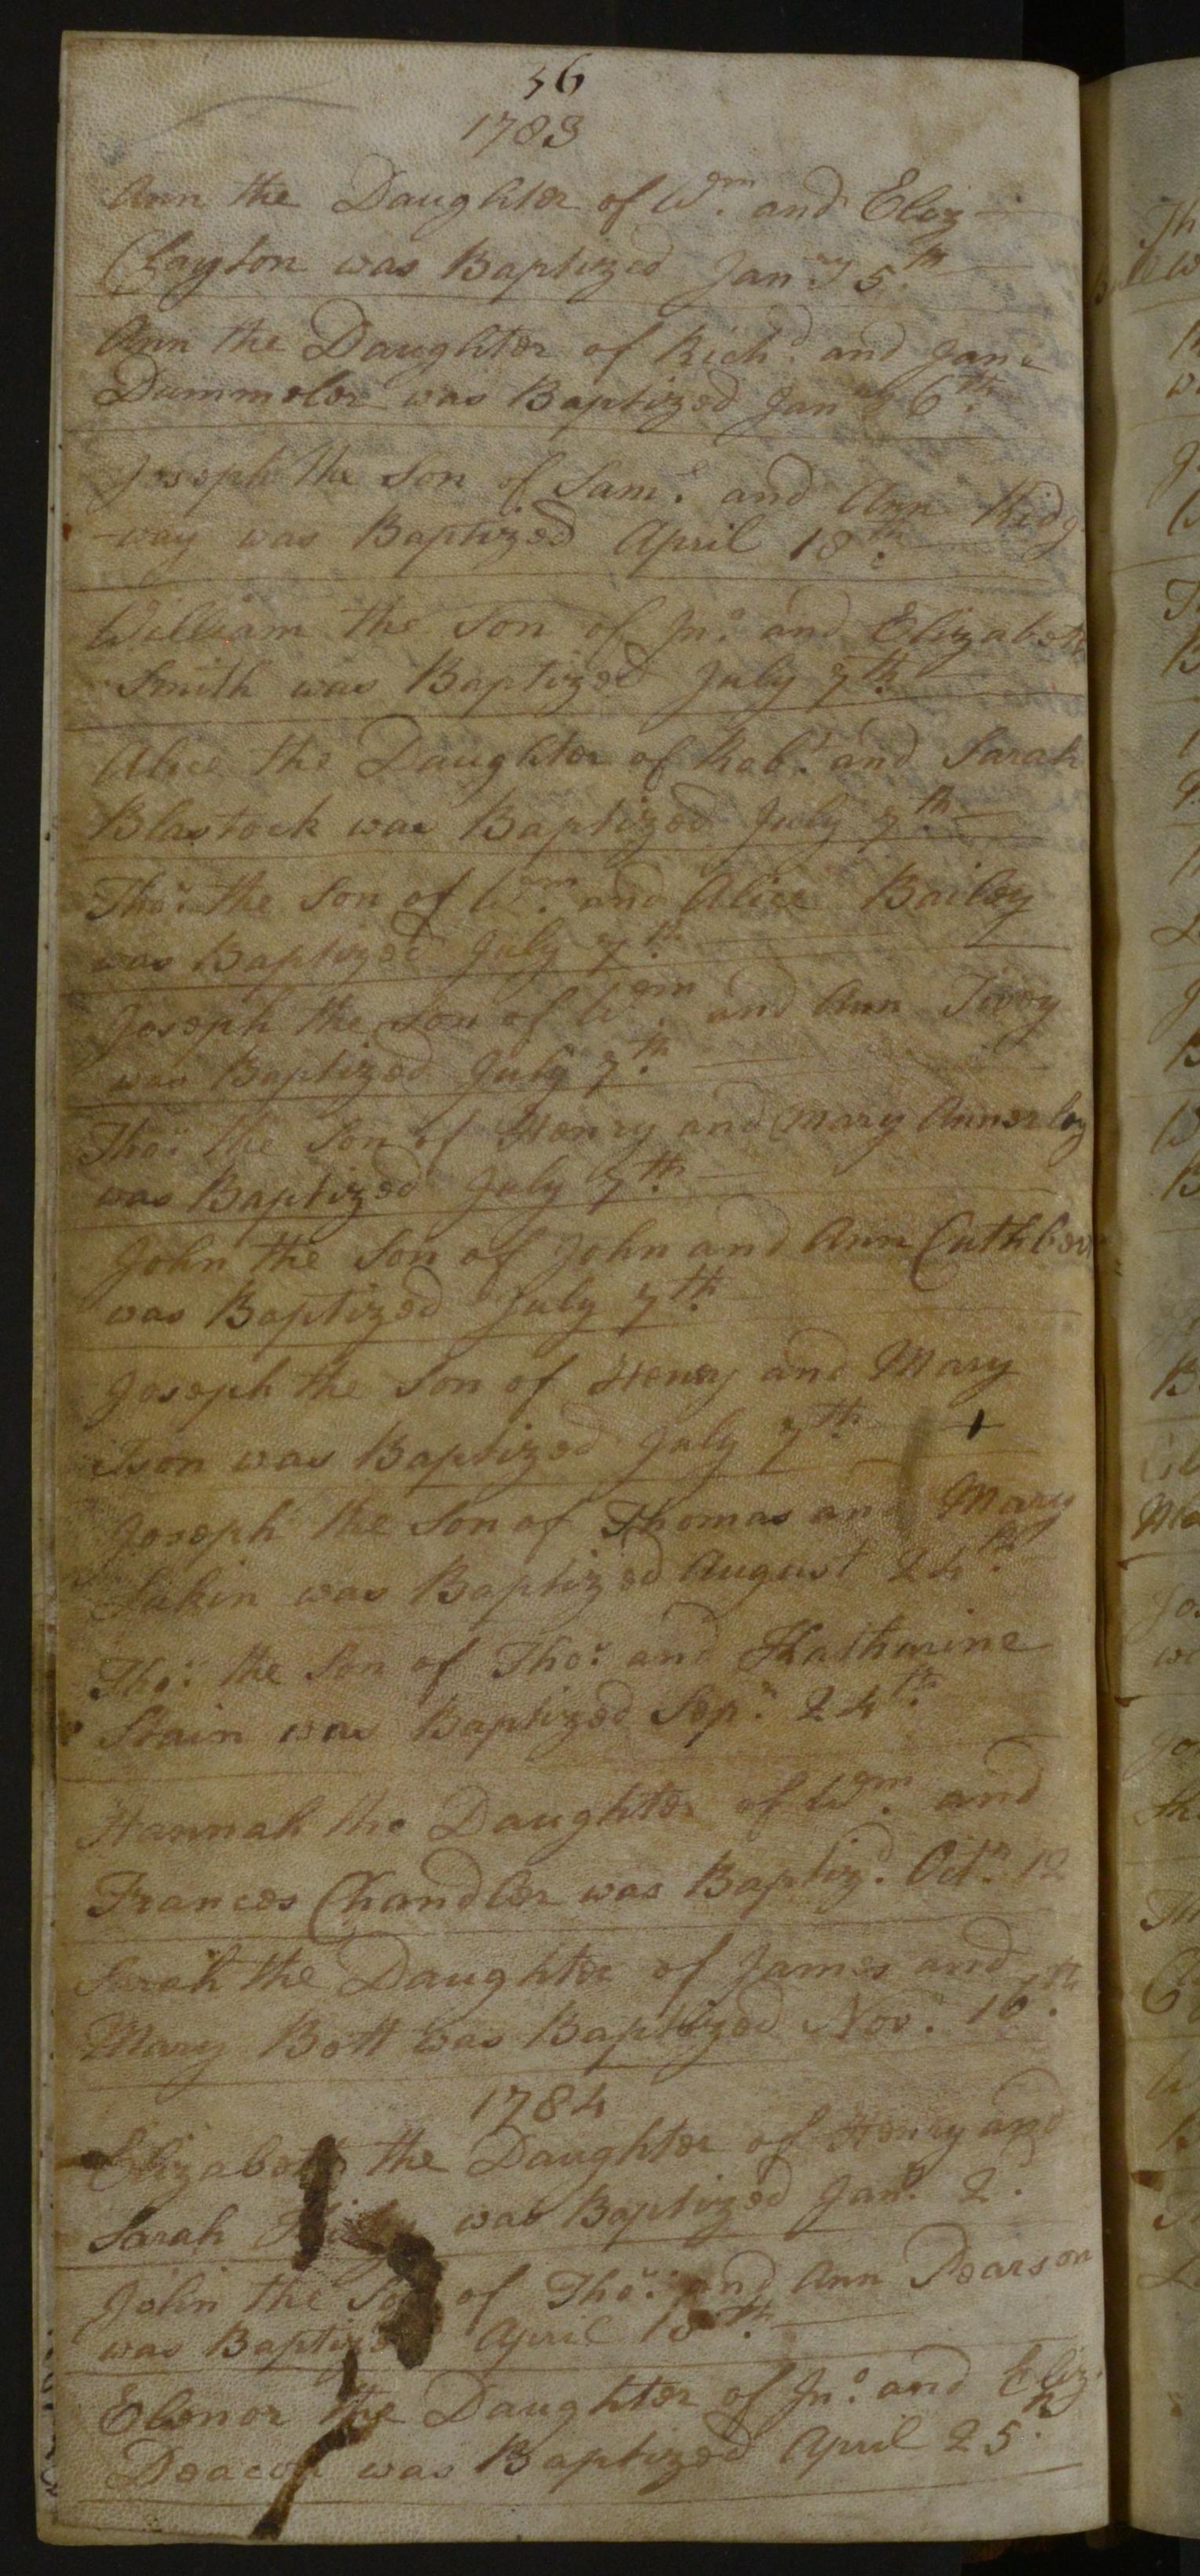 36
1783
Ann the Daughter of Wm. and Eliz
Clayton was Baptized Janry 5th
Ann the Daughter of Richd. and Jane
Dummelor was Baptized Janry 6th
Joseph the Son of Saml. and Ann Ridg
-way was Baptized April 18th.
William the Son of Jno. and Elizabeth
Smith was Baptized July 7th
Alice the Daughter of Robt. and Sarah
Blastock was Baptized July 7th
Thos. the Son of Wm. and Alice Bailey
was Baptized July 7th
Joseph the Son of Wm. and Ann Tivey
was Baptized July 7th
Thos. the Son of Henry and Mary Annerley
was Baptized July 7th
John the Son of John and Ann Cuthber
was Baptized July 7th
Joseph the Son of Henry and Mary
Ison was Baptized July 7th
Joseph the Son of Thomas and Mary
was Baptized August 24th
Thos. the Son of Thos. and Katharine
Stain was Baptized Sepr. 24th.
Hannah the Daughter of Wm. and
Frances Chandler was Baptizd. Octr. 12
Sarah the Daughter of James and
Mary Bott was Baptized Nov. 16th.
1784
Elizabeth the Daughter of Henry and
Sarah was Baptized Jany. 2.
John the Son of Thos. and Ann Pearson
was Baptized April 18th.
Elenor the Daughter of Jno. and Eliz.
Deacon was Baptized April 25th